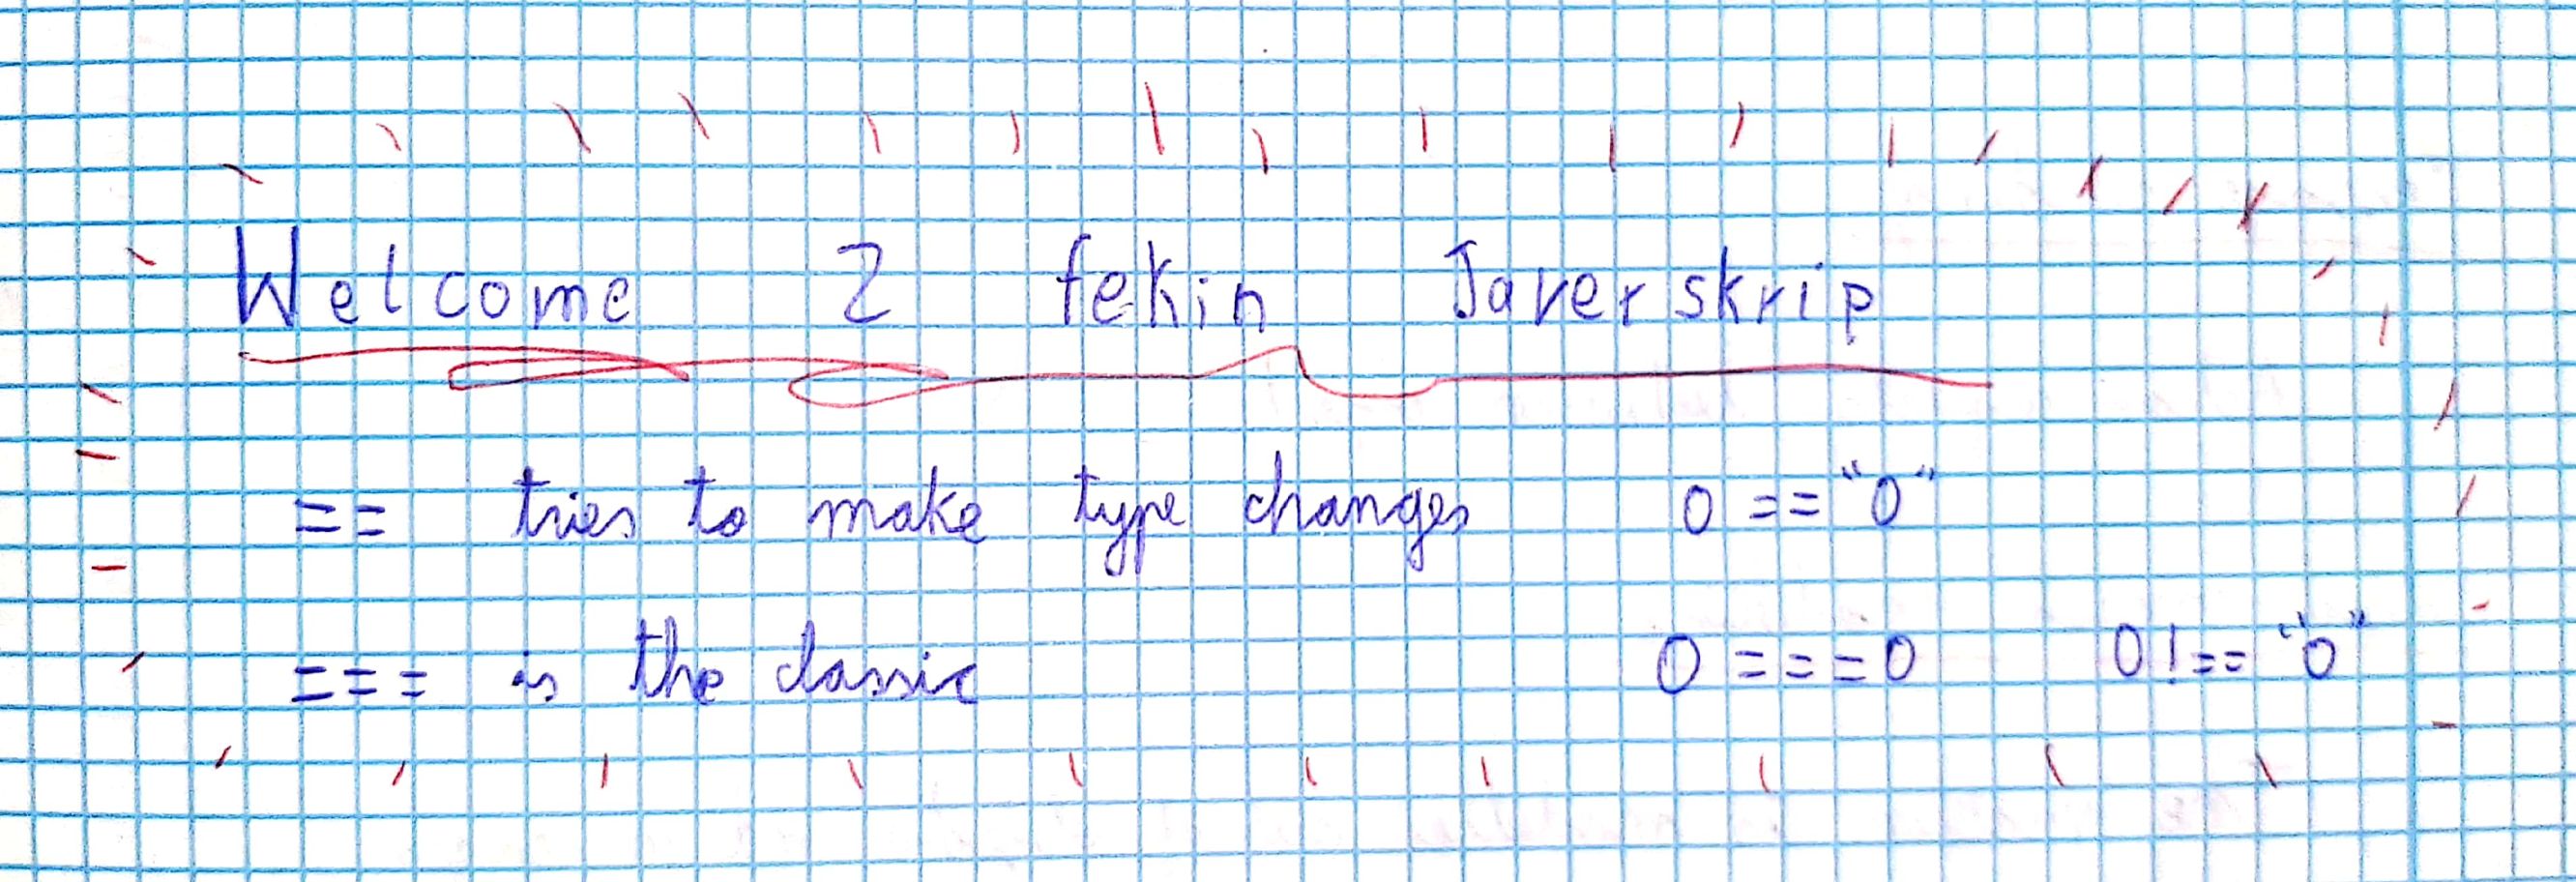 Welcome 2 fekin Javerskrip
== tries to make type changes 0 == "0"
=== is the classic 0 === 0 0 !== "0"